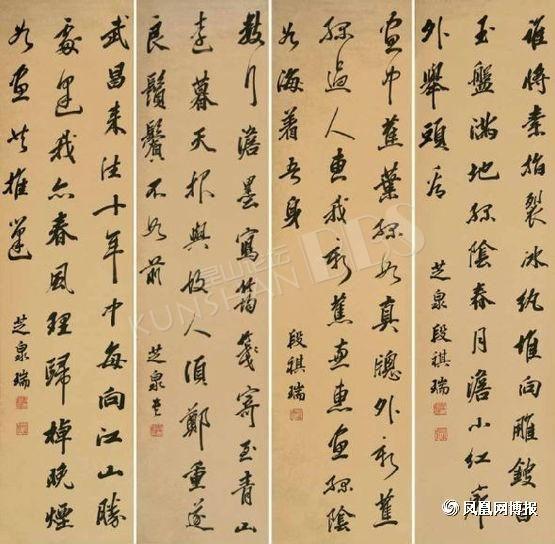 誰將素指裂冰紈堆向雕
玉盤滿地綠陰春月澹小紅亭
外舉頭看
芝泉段祺瑞
畫中蕉葉綠如真牕外新蕉
綠過人惠我新蕉兼惠畫綠陰
如海着吾身
段祺瑞
數行澹墨寫筠箋寄至青山
遠暮天報與故人須鄭重遂
良鬚鬢不如前
芝泉
武昌來往十年中每向江山勝
處逢我亦春風理歸棹晚煙
如畫共推篷
芝泉瑞
昆山论坛 BBS
KUNSHAN
凤凰网博报